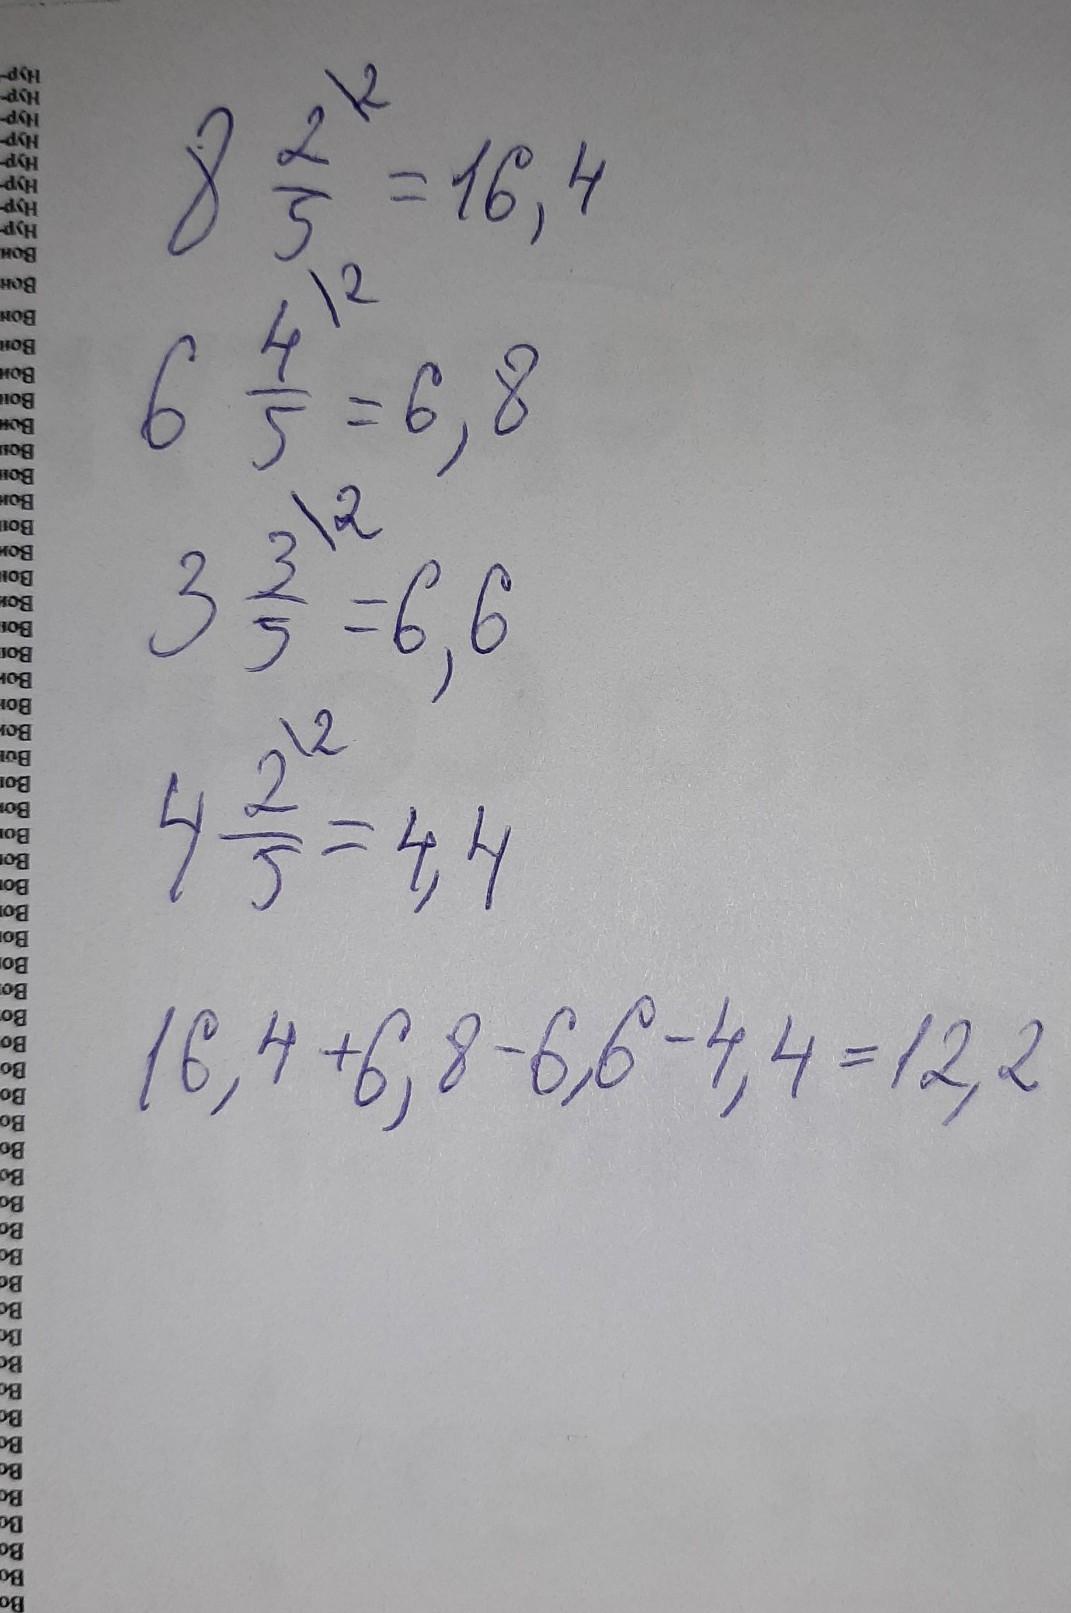 8 2/5 \2 = 16,4
6 4/5 \2 = 6,8
3 3/5 \2 = 6,6
4 2/5 \2 = 4,4
16,4 + 6,8 - 6,6 - 4,4 = 12,2